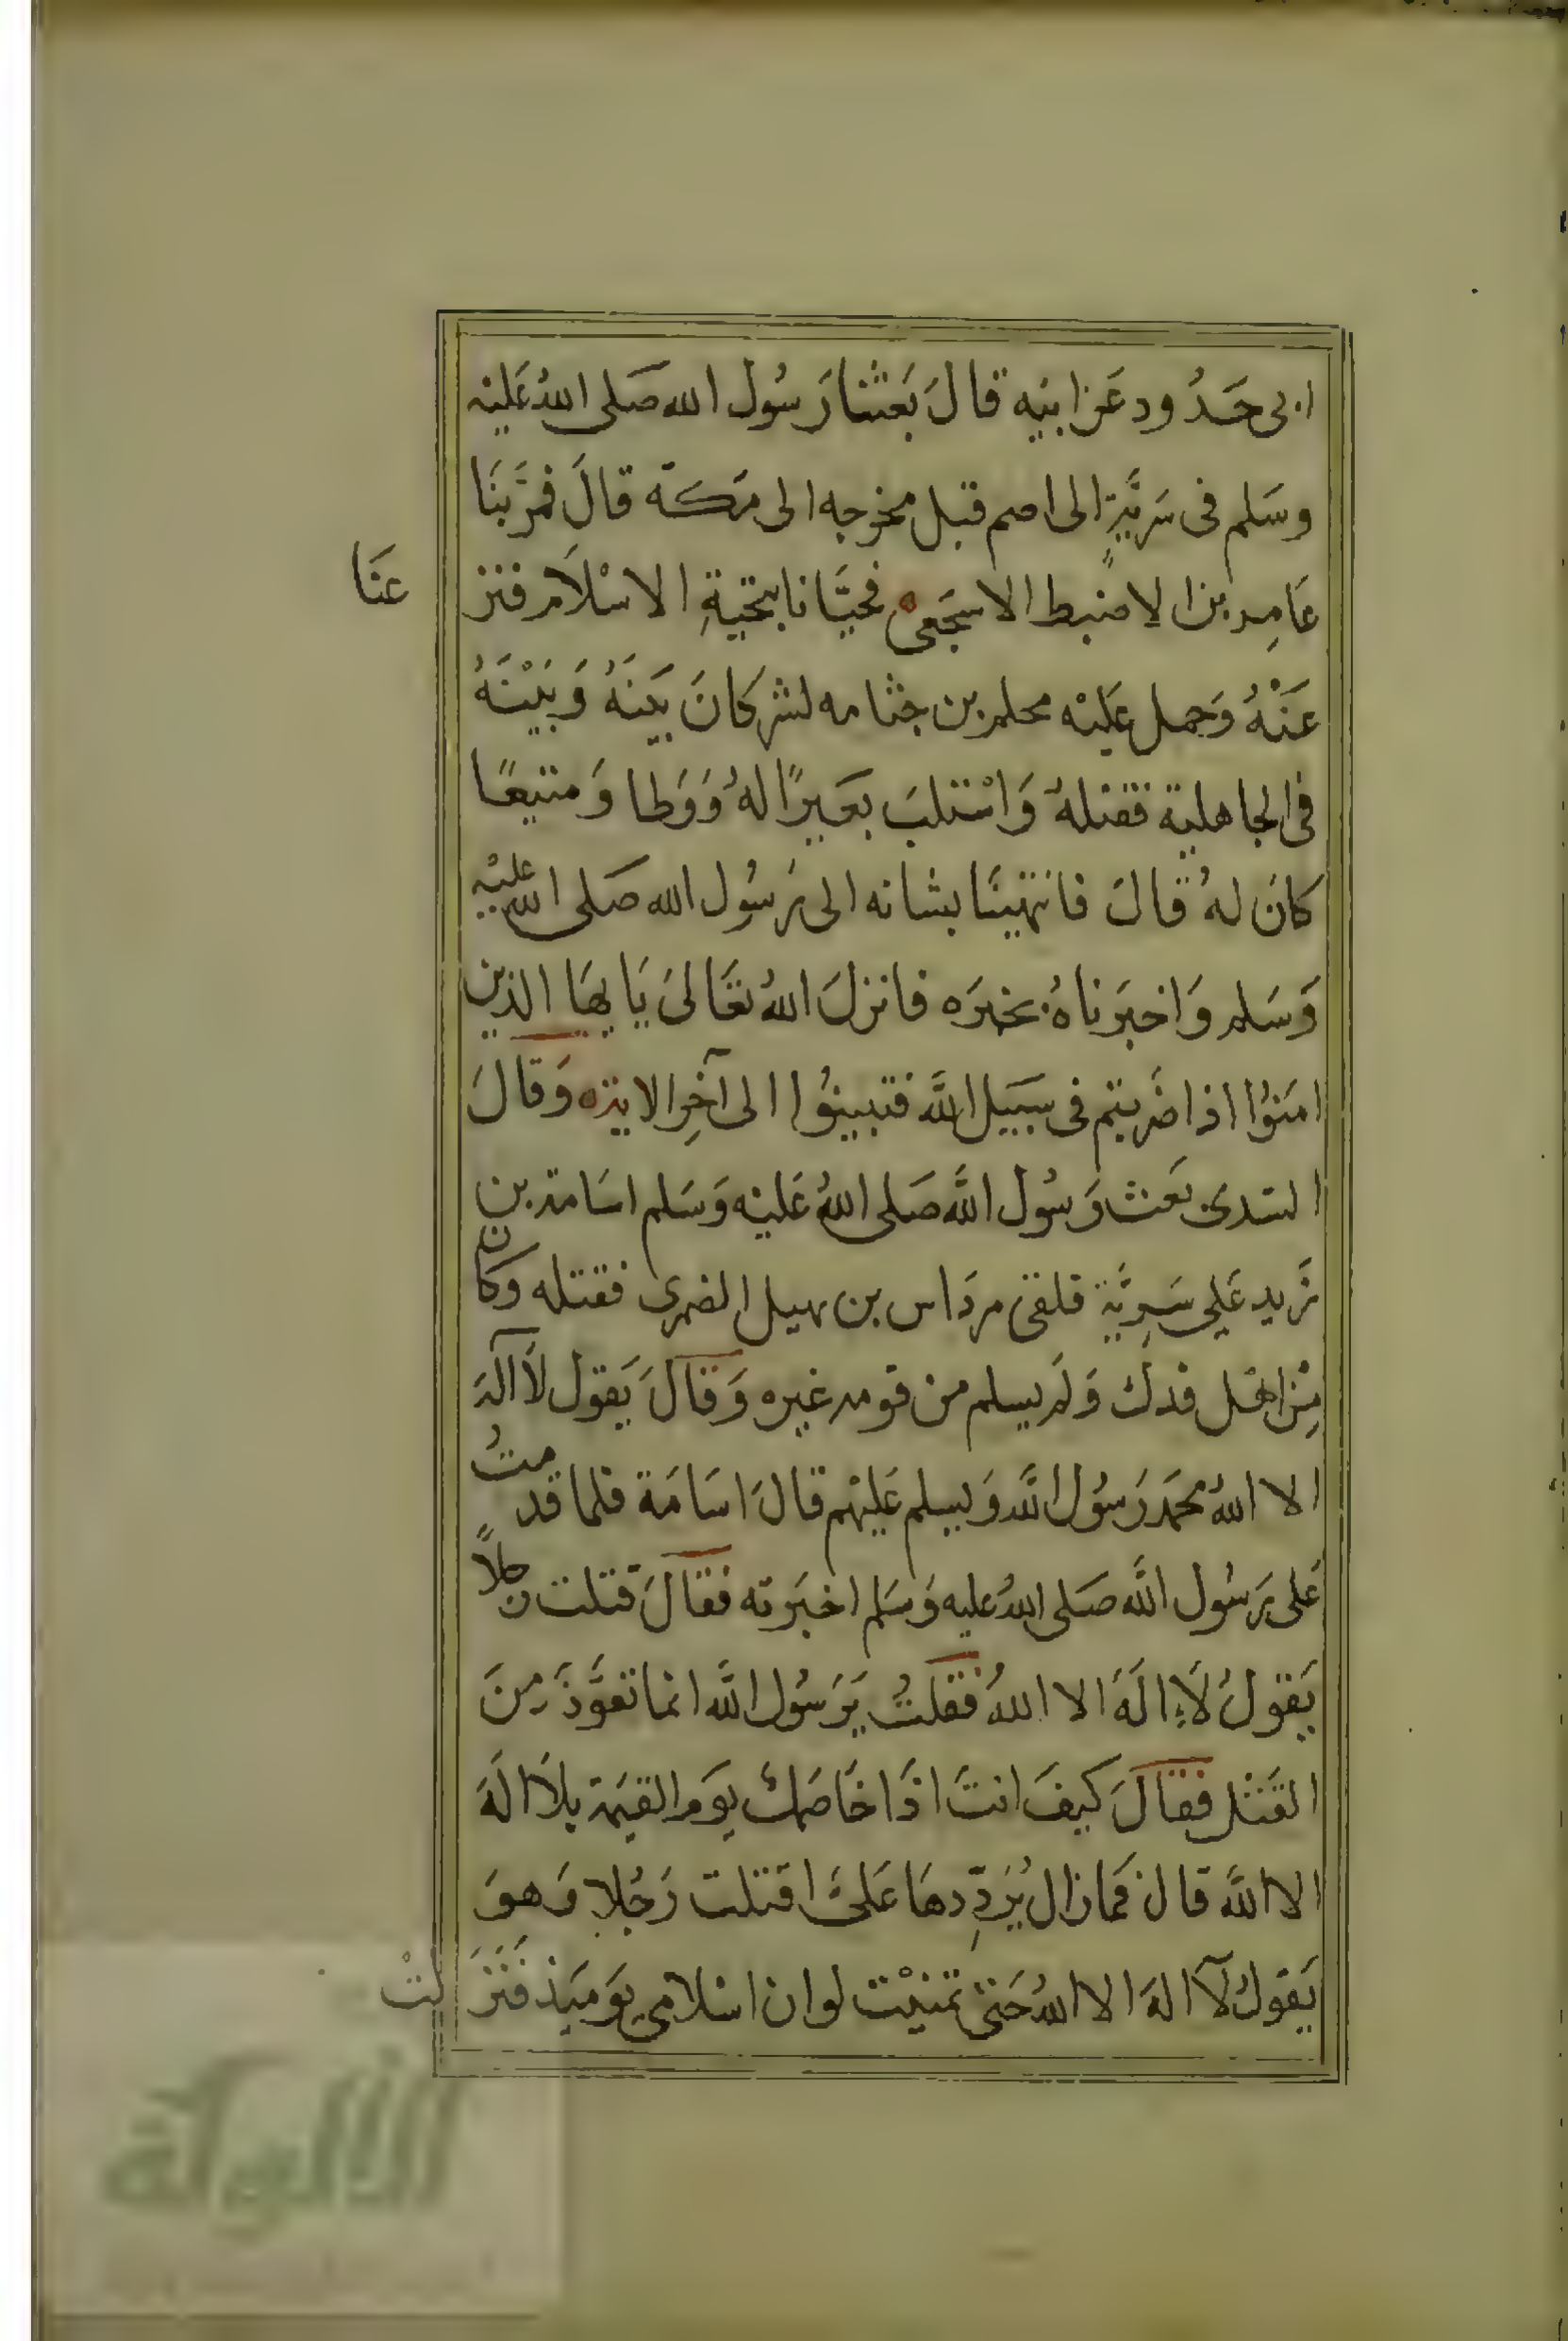 ابى حَدُود عَن ابيْه قالَ بَعَثنا رَسُول الله صَلى اللهُ عَليْه
وسَلم فى سَريَّةٍ الى اصم قبل مخرجه الى مَكة قالَ فمَّر بنَا
عَامِر بن الاضبط الاسجَعى فحيَّانا بتحيةِ الاسْلاَم فنز عنَا
عَنْهُ وَحمل عَليْه محلم بن جثامه لشر كانَ بَينَهُ وَبَيْنَهُ
فى الجاهلية فقتلهُ وَاسْتلبَ بعَيرًا لهُ وَوَطا وَمتيعًا
كانَ لهُ قالَ فانتهيْنَا بشانه الى رَسُول الله صَلى الله عَليْه
وَسَلم وَاخبَرناهُ بخبرَه فانزلَ اللهُ تعَالىَ يَايهَا الذين
امَنوُا اذا ضَربتم فى سَبيَل اللَّه فتبينوُا الى آخِر الاية وَقالَ
السَدى بَعث رَسُول اللَّه صَلى اللهُ عَليْه وَسَلم اسَامة بن
زَيد عَلى سَرِيَّة فلقى مردَاس بن نهيل الضمرى فقتله وكان
مِن اهْل فدك وَلم يسلم من قومه غيره وَقالَ يَقول لاَ آلهَ
الا اللهُ محمَد رَسُول اللَّه وَيسلم عَليْهم قالَ اسَامَة فلما قدمتُ
عَلى رَسُول اللَّه صَلى اللهُ عليه وَسَلم اخبَرته فقالَ قتلت رجلاً
يَقولُ لاَ الَهَ الا اللهُ فقلتُ يَرَسُول اللَّه انما تعَوَّذَ مِنَ
القَتْل فقالَ كيفَ انتَ اذَا خَاصَمكَ يَوم القيمَة بلاَ الَهَ
الا اللَّه قال فمازال يُرَدِّدهَا عَلىَّ اقتلت رَجُلا وَهوَ
يَقولُ لآ الهَ الا اللهُ حَتى تمنيْت لوان اسْلامى يَوميَذ فَنَزَلتْ